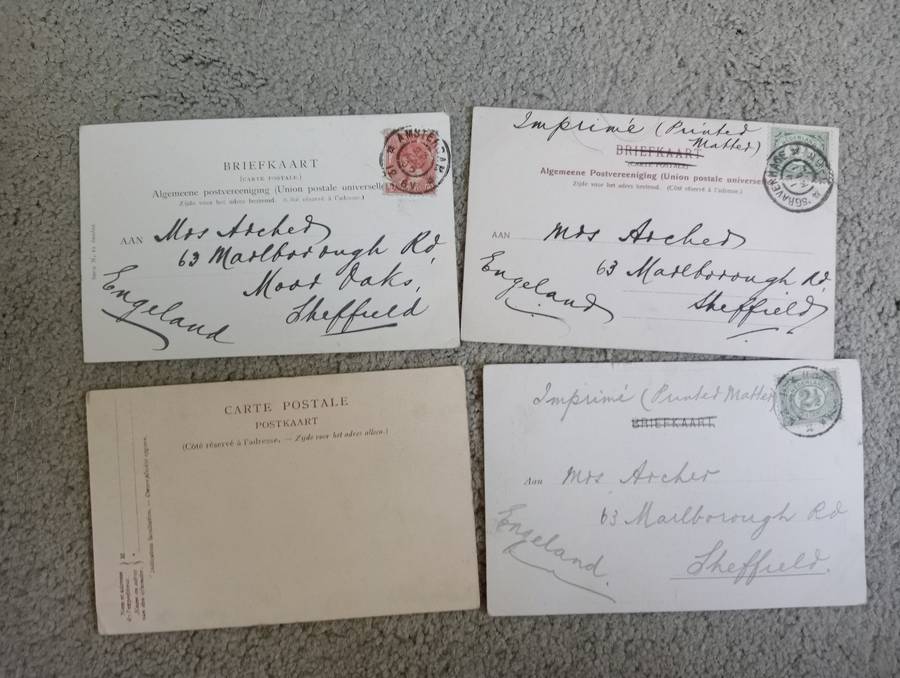 BRIEFKAART
(CARTE POSTALE)
Algemeene postvereeniging (Union postale universelle)
Zijde voor het adres bestemd. (Côté réservé à l'adresse.)
AMSTERDAM
AAN Mrs Archer
63 Marlborough Rd,
Moor Oaks,
Sheffield
Engeland
Imprimé (Printed
Matter)
BRIEFKAART
CARTE POSTALE
Algemeene Postvereeniging (Union postale universe
Zijde voor het adres bestemd. (Côté réservé à l'adresse.)
'SGRAVENHAGE
AAN Mrs Archer
63 Marlborough Rd.
Sheffield
Engeland
CARTE POSTALE
POSTKAART
(Côté réservé à l'adresse. — Zijde voor het adres alleen.)
Imprimé (Printed Matter)
BRIEFKAART
2½
Aan Mrs Archer
63 Marlborough Rd
Sheffield.
Engeland.